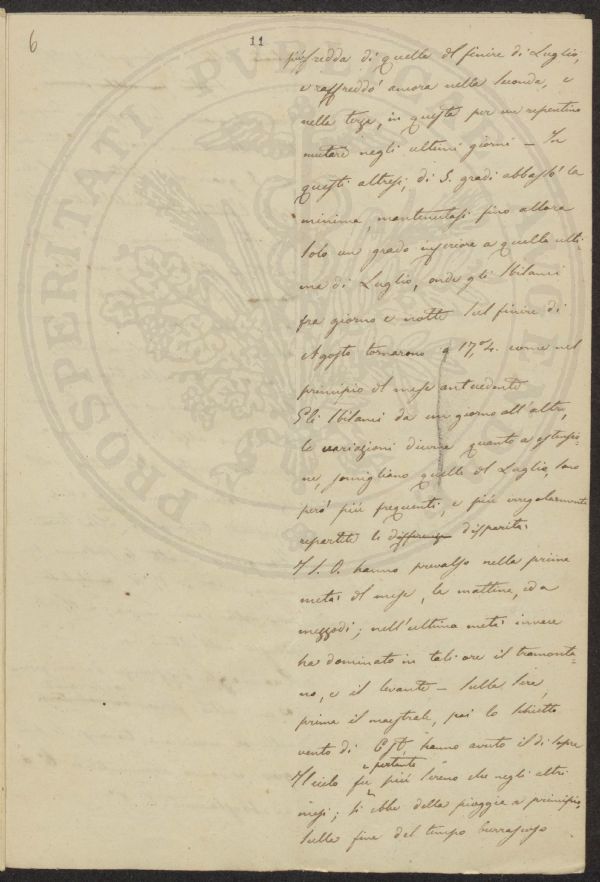 6
11
più fredda di quella del finire di Luglio,
e raffreddò ancora nella seconda, e
nella terza, in questa per un repentino
mutare negli ultimi giorni – In
questi altresì, di 5. gradi abbassò la
minima, mantenutasi fino allora
solo un grado inferiore a quella ulti-
ma di Luglio, onde gli sbilanci
fra giorno e notte sul finire di
Agosto tornarono a 17,°4. come nel
principio del mese antecedente
Gli sbilanci da un giorno all'altro,
le variazioni diurne quanto a estensio-
ne, somigliano quelle del Luglio, sono
però più frequenti, e più irregolarmente
repartite le differenze disparità.
I S. O. hanno prevalso nella prima
metà del mese, la mattina, ed a
mezzodì; nell'ultima metà invece
ha dominato in tali ore il tramonta-
no, e il levante – Sulla sera
prima il maestrale, poi lo schietto
vento di Est, hanno avuto il di sopra
Il cielo fu più sereno che negli altri
e pertanto
mesi; si ebbe della pioggia a principio,
sulla fine del tempo burrascoso
PROSPERITATI PUBLICAE AUGENDAE